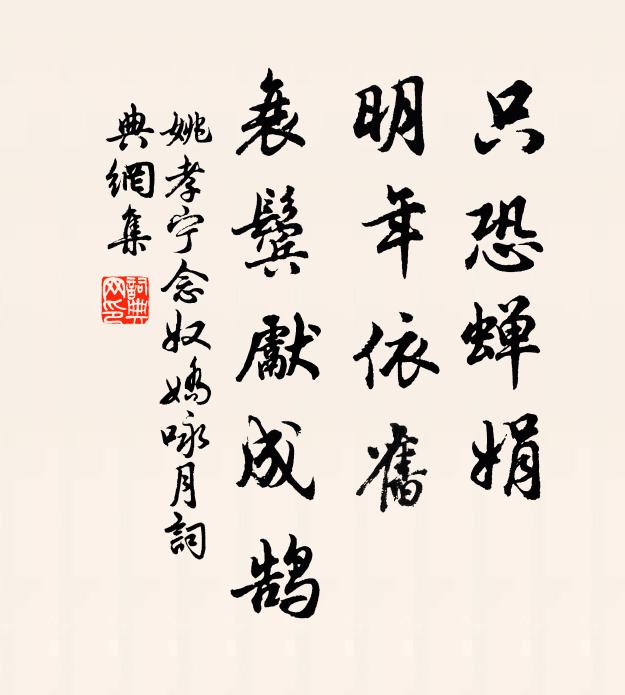 只恐蝉娟
明年依舊
衰鬢獻成鵠
姚孝宁念奴嬌咏月詞
典網集
詞典
网印